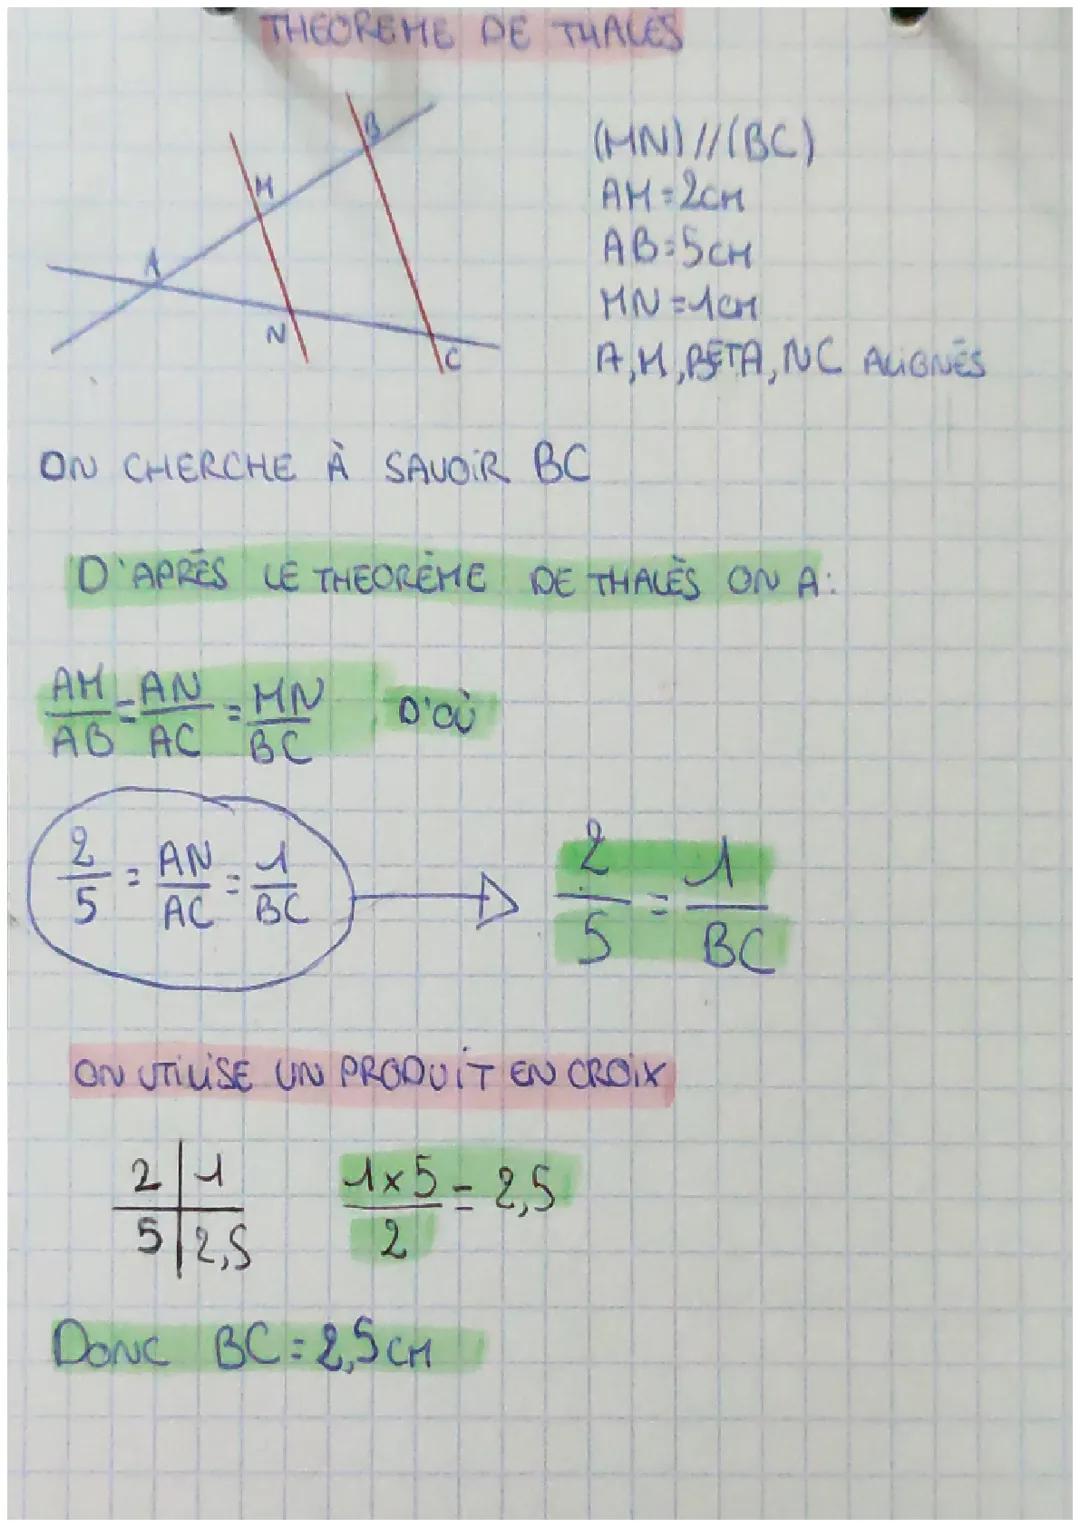 THEOREME DE THALES
B
M
A
N
C
(MN)//(BC)
AM=2CM
AB=5CM
MN=1CM
A,M,BETA,NC ALIGNÉS
ON CHERCHE À SAVOIR BC
D'APRÈS LE THEORÈME DE THALÈS ON A:
AM/AB=AN/AC=MN/BC D'OÙ
2/5=AN/AC=1/BC → 2/5=1/BC
ON UTILISE UN PRODUIT EN CROIX
2|1 1x5/2=2,5
5|2,5
DONC BC=2,5CM